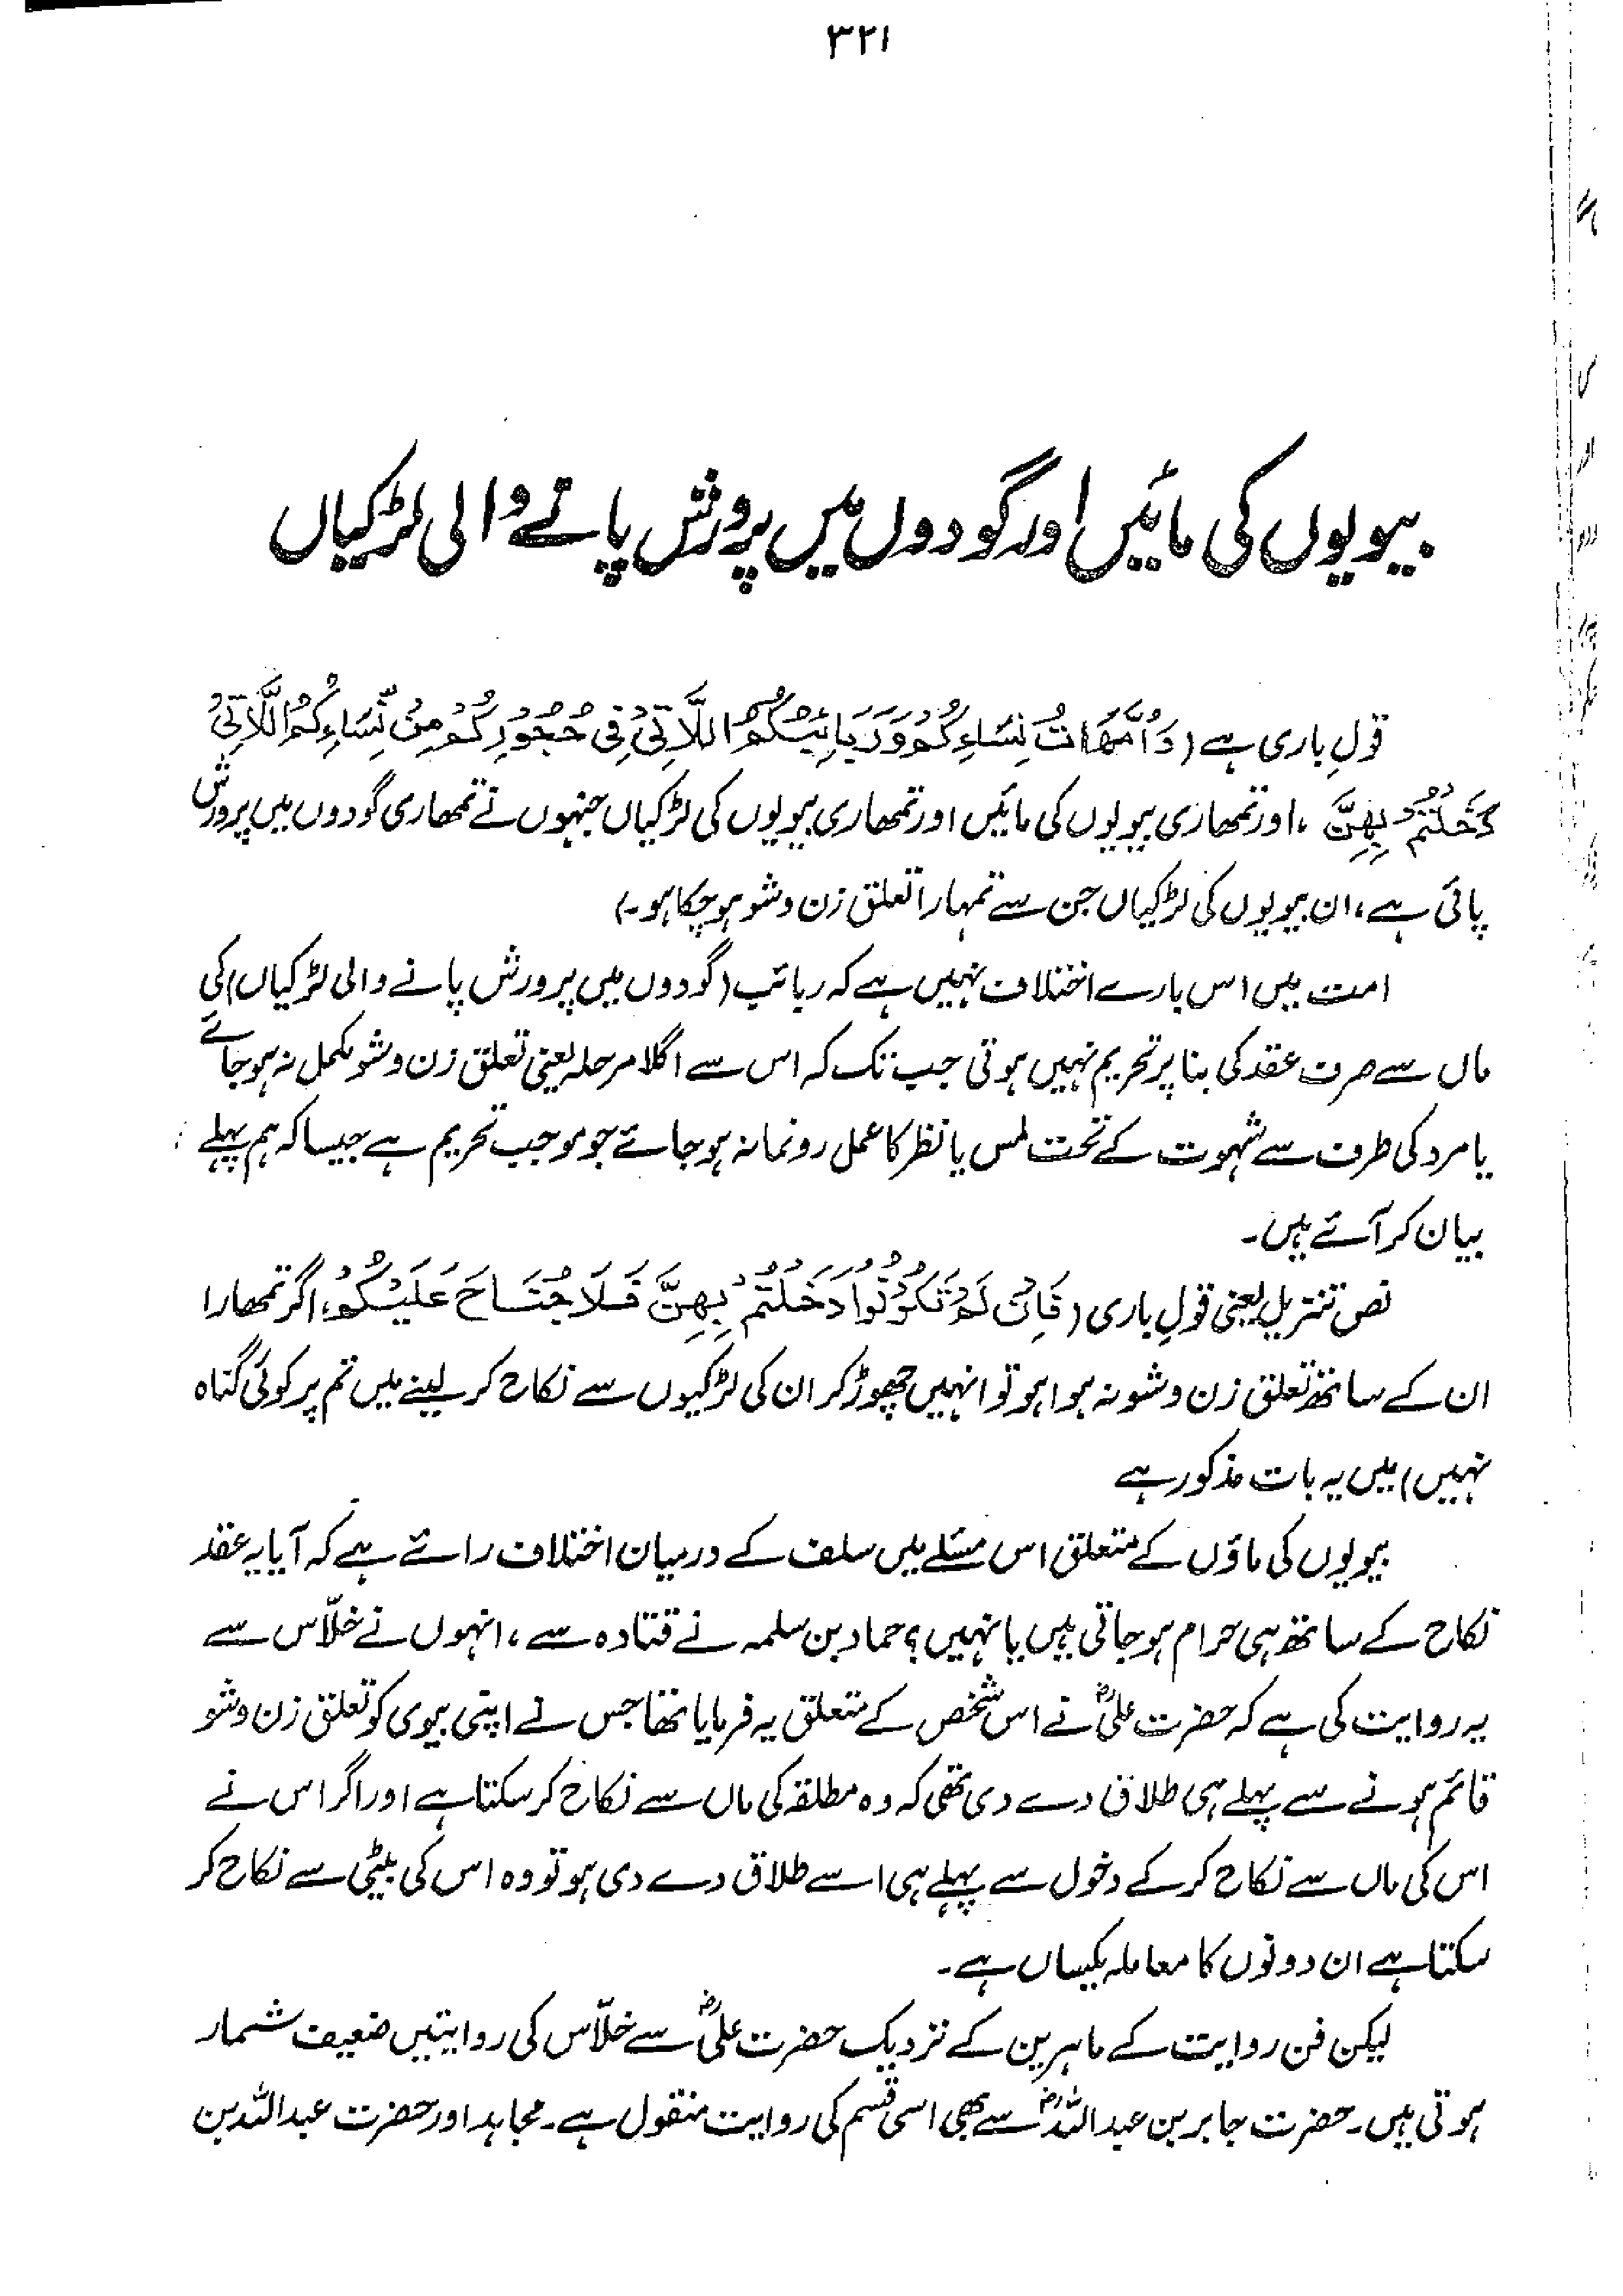 ۳۲۱
بیویوں کی مائیں اور گودوں میں پرورش پانے والی لڑکیاں
قولِ باری ہے (وَاُمَّهَاتُ نِسَاءِكُمْ وَرَبَائِبُكُمُ اللَّاتِيْ فِيْ حُجُوْرِكُمْ مِنْ نِّسَاءِكُمُ اللَّاتِيْ
دَخَلْتُمْ بِهِنَّ ، اور تمھاری بیویوں کی مائیں اور تمھاری بیویوں کی لڑکیاں جنہوں نے تمھاری گودوں میں پرورش
پائی ہے، ان بیویوں کی لڑکیاں جن سے تمہارا تعلق زن و شو ہو چکا ہو۔)
امت میں اس بارے اختلاف نہیں ہے کہ ربائب (گودوں میں پرورش پانے والی لڑکیاں) کی
ماں سے صرف عقد کی بنا پر تحریم نہیں ہوتی جب تک کہ اس سے اگلا مرحلہ یعنی تعلق زن و شو مکمل نہ ہو جائے
یا مرد کی طرف سے شہوت کے تحت لمس یا نظر کا عمل رونما نہ ہو جائے جو موجب تحریم ہے جیسا کہ ہم پہلے
بیان کر آئے ہیں۔
نص تنزیل یعنی قولِ باری (فَاِنْ لَمْ تَكُوْنُوْا دَخَلْتُمْ بِهِنَّ فَلَا جُنَاحَ عَلَيْكُمْ، اگر تمھارا
ان کے ساتھ تعلق زن و شو نہ ہوا ہو تو انہیں چھوڑ کر ان کی لڑکیوں سے نکاح کر لینے میں تم پر کوئی گناہ
نہیں) میں یہ بات مذکور ہے
بیویوں کی ماؤں کے متعلق اس مسئلے میں سلف کے درمیان اختلاف رائے ہے کہ آیا یہ عقد
نکاح کے ساتھ ہی حرام ہو جاتی ہیں یا نہیں؟ حماد بن سلمہ نے قتادہ سے، انہوں نے خلّاس سے
یہ روایت کی ہے کہ حضرت علیؓ نے اس شخص کے متعلق یہ فرمایا تھا جس نے اپنی بیوی کو تعلق زن و شو
قائم ہونے سے پہلے ہی طلاق دے دی تھی کہ وہ مطلقہ کی ماں سے نکاح کر سکتا ہے اور اگر اس نے
اس کی ماں سے نکاح کر کے دخول سے پہلے ہی اسے طلاق دے دی ہو تو وہ اس کی بیٹی سے نکاح کر
سکتا ہے ان دونوں کا معاملہ یکساں ہے۔
لیکن فن روایت کے ماہرین کے نزدیک حضرت علیؓ سے خلّاس کی روایتیں ضعیف شمار
ہوتی ہیں۔ حضرت جابر بن عبداللہؓ سے بھی اسی قسم کی روایت منقول ہے۔ مجاہد اور حضرت عبداللہ بن